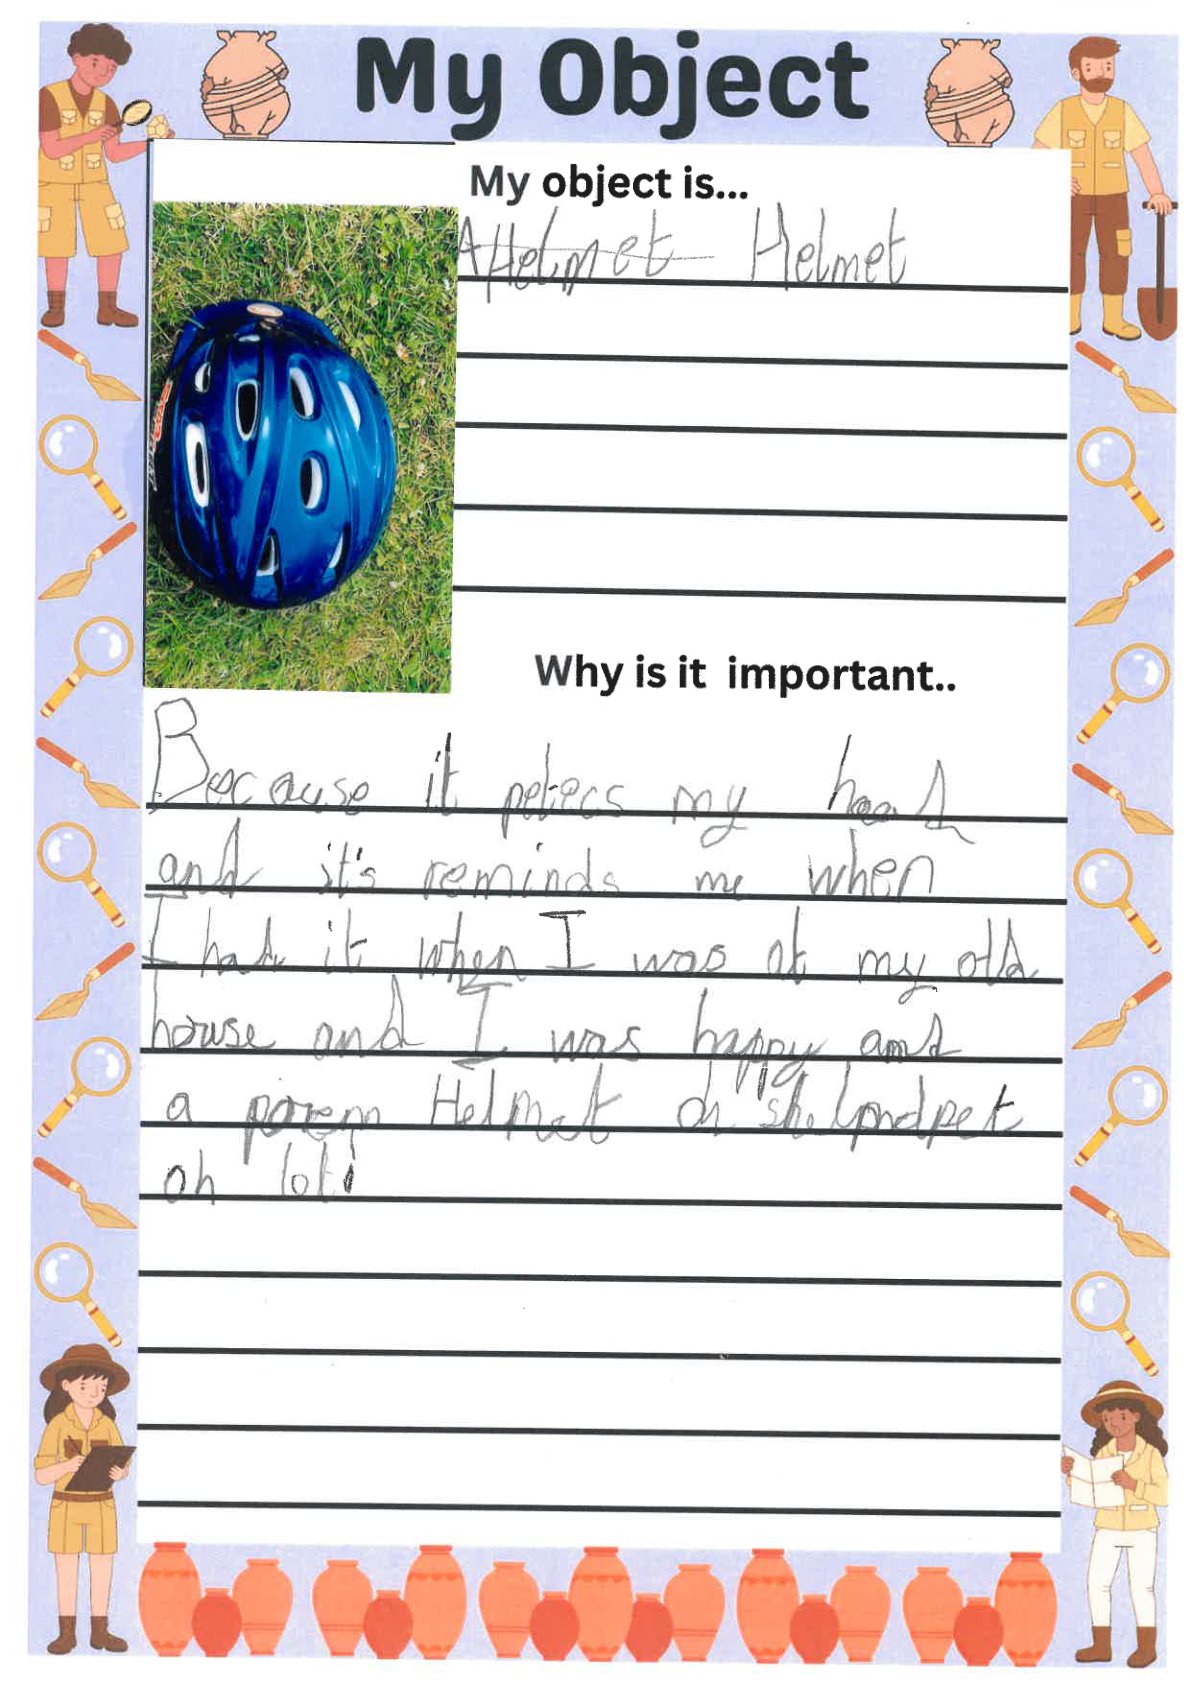 My Object
My object is...
A Helmet Helmet
Why is it important..
Because it petecs my head
and it's reminds me when
I had it when I was at my old
house and I was happy and
a Helmet
oh lot.